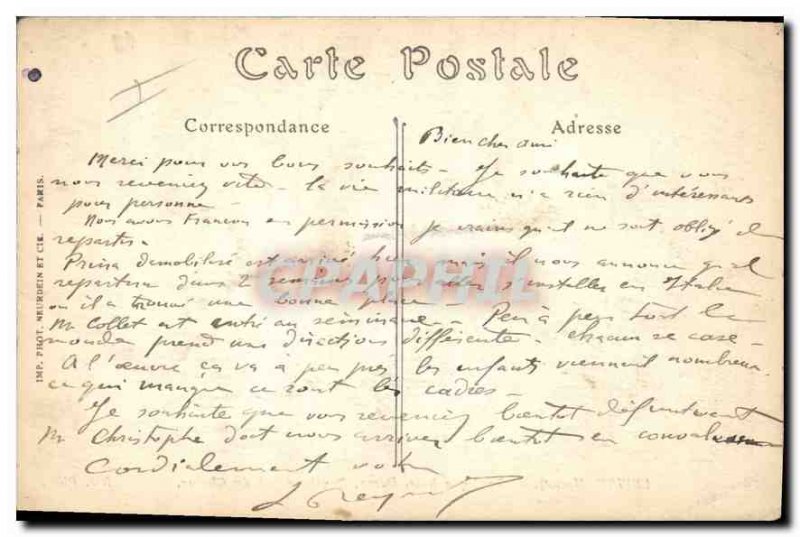 Carte Postale
Correspondance
Adresse
Bien cher ami
Merci pour vos bons souhaits - Je souhaite que vous
nous reveniez vite - la vie militaire n'a rien d'intéressant
pour personne -
Nous avons François en permission je crains qu'il ne soit obligé de
repartir.
démobilisé est arrivé mais il nous annonce qu'il
repartira dans 2 semaines pour aller s'installer en Italie
où il a trouvé une bonne place
M Collet est entré au séminaire - Peu à peu tout le
monde prend une direction différente - chacun se case -
A l'œuvre ça va à peu près les enfants viennent nombreux
ce qui manque ce sont les cadres -
Je souhaite que vous reveniez bientôt définitivement
M Christophe doit nous arriver bientôt en
Cordialement votre
IMP. PHOT. NEURDEIN ET CIE. — PARIS.
CPAPHIL